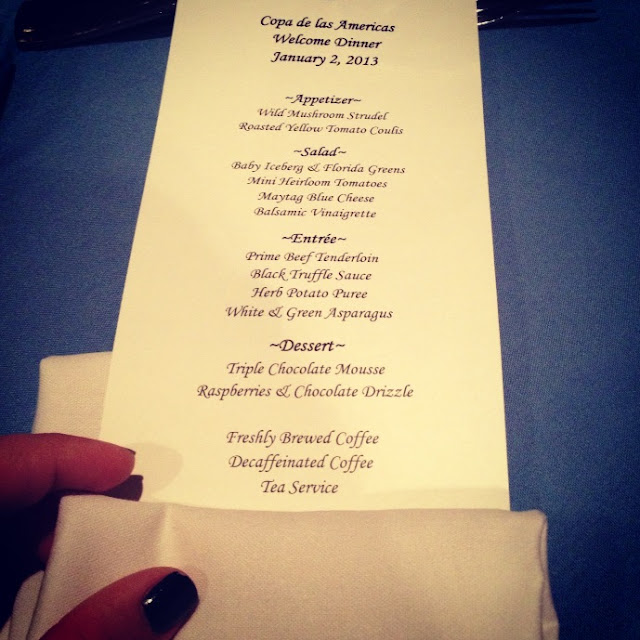 Copa de las Americas
Welcome Dinner
January 2, 2013
~Appetizer~
Wild Mushroom Strudel
Roasted Yellow Tomato Coulis
~Salad~
Baby Iceberg & Florida Greens
Mini Heirloom Tomatoes
Maytag Blue Cheese
Balsamic Vinaigrette
~Entrée~
Prime Beef Tenderloin
Black Truffle Sauce
Herb Potato Puree
White & Green Asparagus
~Dessert~
Triple Chocolate Mousse
Raspberries & Chocolate Drizzle
Freshly Brewed Coffee
Decaffeinated Coffee
Tea Service